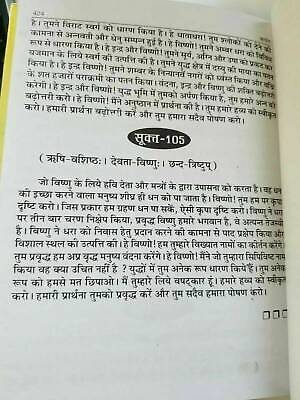 424
है। तुमने विराट स्वर्ग को धारण किया है। हे धावाधरा! तुम श्लोकों को देने की
कामना से अन्नवती और धेनु सम्पन्न हुई हो। हे विष्णो! तुमने धरा को विविध
रूप से धारण किया है। हे इन्द्र और विष्णो! तुमने शम्बर
यजमान के लिये स्वर्ग की उत्पत्ति की है। तुमने सूर्य, अग्नि और उषा को प्रकट
किया है। हे इन्द्र और विष्णो! तुमने युद्ध क्षेत्र में दस्यु की माया का पतन
के शत हजारों पराक्रमी का पतन किया।
करेंगे। हे इन्द्र और विष्णो! युद्ध भूमि में तुमको अर्पण किया है, तुम हमारे अन्न
बढ़ोत्तरी करो। हे विष्णो! मैंने अनुष्ठान में प्रार्थना की है। तुम हमारे हव्य को
करो। हमारी प्रार्थना बढ़ोत्तरी करें और तुम हमारा सदैव पोषण करो।
सूक्त-105
( ऋषि-वशिष्ठः। देवता-विष्णुः। छन्द-त्रिष्टुप् )
जो विष्णु के लिये हवि देता और मन्त्रों के द्वारा उपासना को करता है। वह धन
की इच्छा करने वाला मनुष्य शीघ्र ही धन को पा जाता है। विष्णो! तुम हम पर कृपा
दृष्टि करो। जिस प्रकार हम ग्रहण धन पा सकें, ऐसी कृपा दृष्टि करो। विष्णु ने धरा
पर तीन वार चरण निक्षेप किया, प्रवृद्ध विष्णु हमारे भगवान है, वे अत्यन्त तेजस्वी
है। विष्णु ने धरा को निवास हेतु प्रदान करने की कामना से पाद प्रक्षेप किया और
विशाल स्थल की उत्पत्ति की। हे विष्णो! हम तुम्हारे विख्यात नामों का कीर्तन करेंगे।
तुम प्रवृद्ध हम अप्र वृद्ध मनुष्य वंदना करेंगे। हे विष्णो! मैंने जो तुम्हारा सिपिविष्ट नाम
किया वह क्या उचित नहीं है ? युद्धों में तुमने अनेक रूप धारण किये हैं। तुम अनेक
रूप को हमसे मत छिपाओ। मैं तुम्हारे लिये वषट्कार हूं। हमारे हव्य को स्वीकृति
करो। हमारी प्रार्थना तुमको प्रवृद्ध करें और तुम सदैव हमारा पोषण करो।
❑❑❑